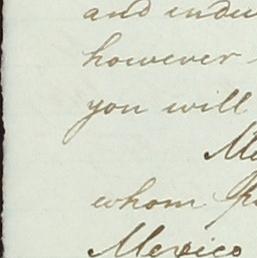 and indu
however
you will
whom
Mexico